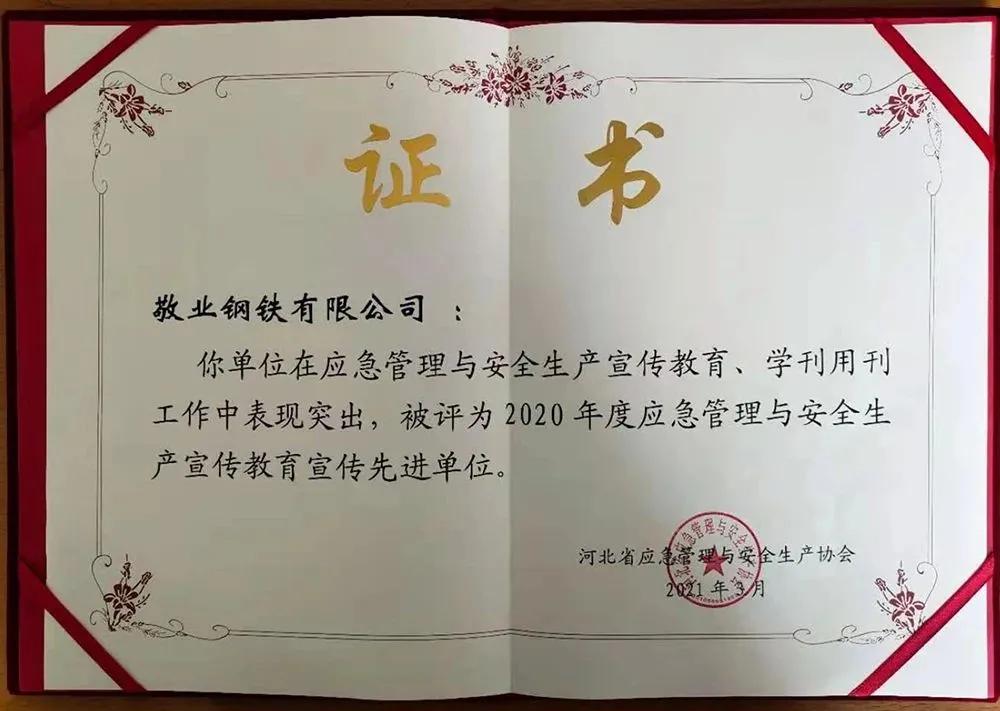 证 书
敬业钢铁有限公司 ：
你单位在应急管理与安全生产宣传教育、学刊用刊
工作中表现突出，被评为 2020 年度应急管理与安全生
产宣传教育宣传先进单位。
河北省应急管理与安全生产协会
2021 年 月